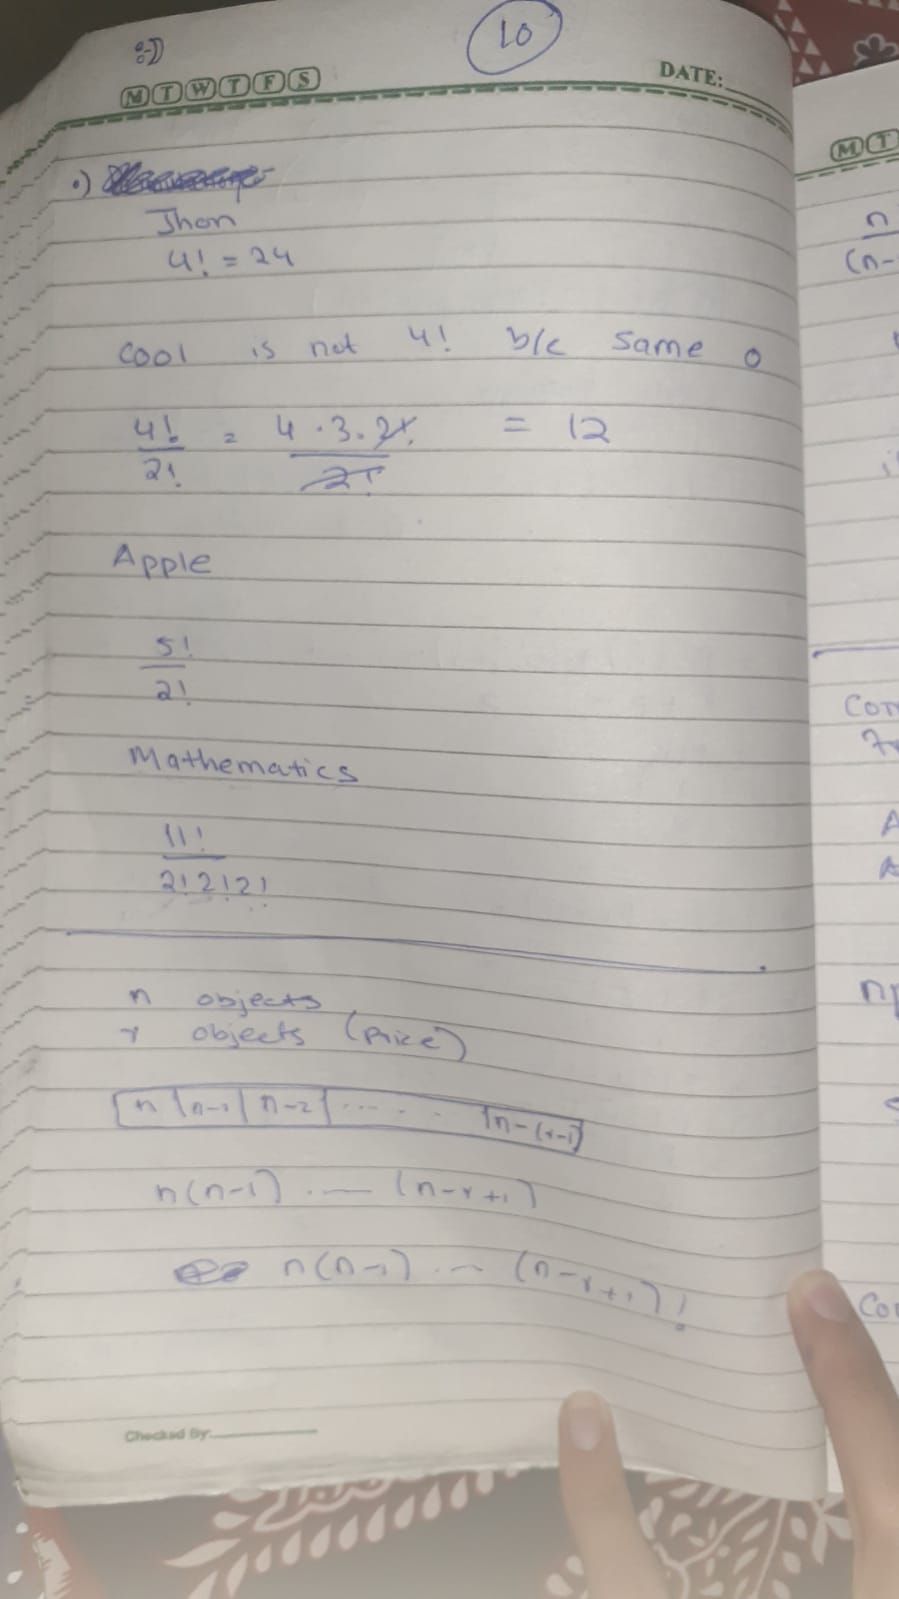 :-)
10
M T W T F S
DATE:
•)
Jhon
4! = 24
Cool is not 4! b/c same o
4!/2! = 4·3·2!/2! = 12
Apple
5!/2!
Mathematics
11!/2!2!2!
n objects
r objects (Price)
n | n-1 | n-2 | ...... | n-(r-1)
n(n-1) .— (n-r+1)
n(n-1) .— (n-r+1)!
Checked By:
M T
n
(n-
Con
A
A
np
Co